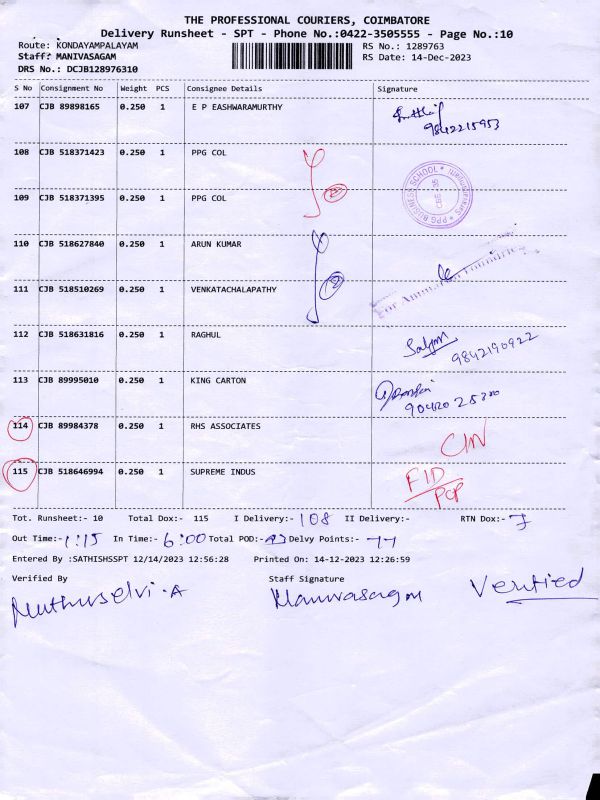 THE PROFESSIONAL COURIERS, COIMBATORE
Delivery Runsheet - SPT - Phone No.:0422-3505555 - Page No.:10
Route: KONDAYAMPALAYAM RS No.: 1289763
Staff: MANIVASAGAM RS Date: 14-Dec-2023
DRS No.: DCJB128976310
S No Consignment No Weight PCS Consignee Details Signature
107 CJB 89898165 0.250 1 E P EASHWARAMURTHY
9842215953
108 CJB 518371423 0.250 1 PPG COL
109 CJB 518371395 0.250 1 PPG COL PPG BUSINESS SCHOOL
110 CJB 518627840 0.250 1 ARUN KUMAR
111 CJB 518510269 0.250 1 VENKATACHALAPATHY For
112 CJB 518631816 0.250 1 RAGHUL
9842190922
113 CJB 89995010 0.250 1 KING CARTON
114 CJB 89984378 0.250 1 RHS ASSOCIATES
115 CJB 518646994 0.250 1 SUPREME INDUS
Tot. Runsheet:- 10 Total Dox:- 115 I Delivery:- 108 II Delivery:- RTN Dox:- 7
Out Time:- 1:15 In Time:- 6:00 Total POD:- Delvy Points:- 77
Entered By :SATHISHSSPT 12/14/2023 12:56:28 Printed On: 14-12-2023 12:26:59
Verified By Staff Signature Verified
Muthuselvi.A Manivasagam